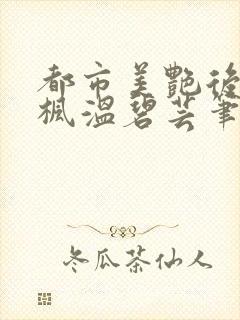 都市美艷後
楓溫碧芸筆
冬瓜茶仙人